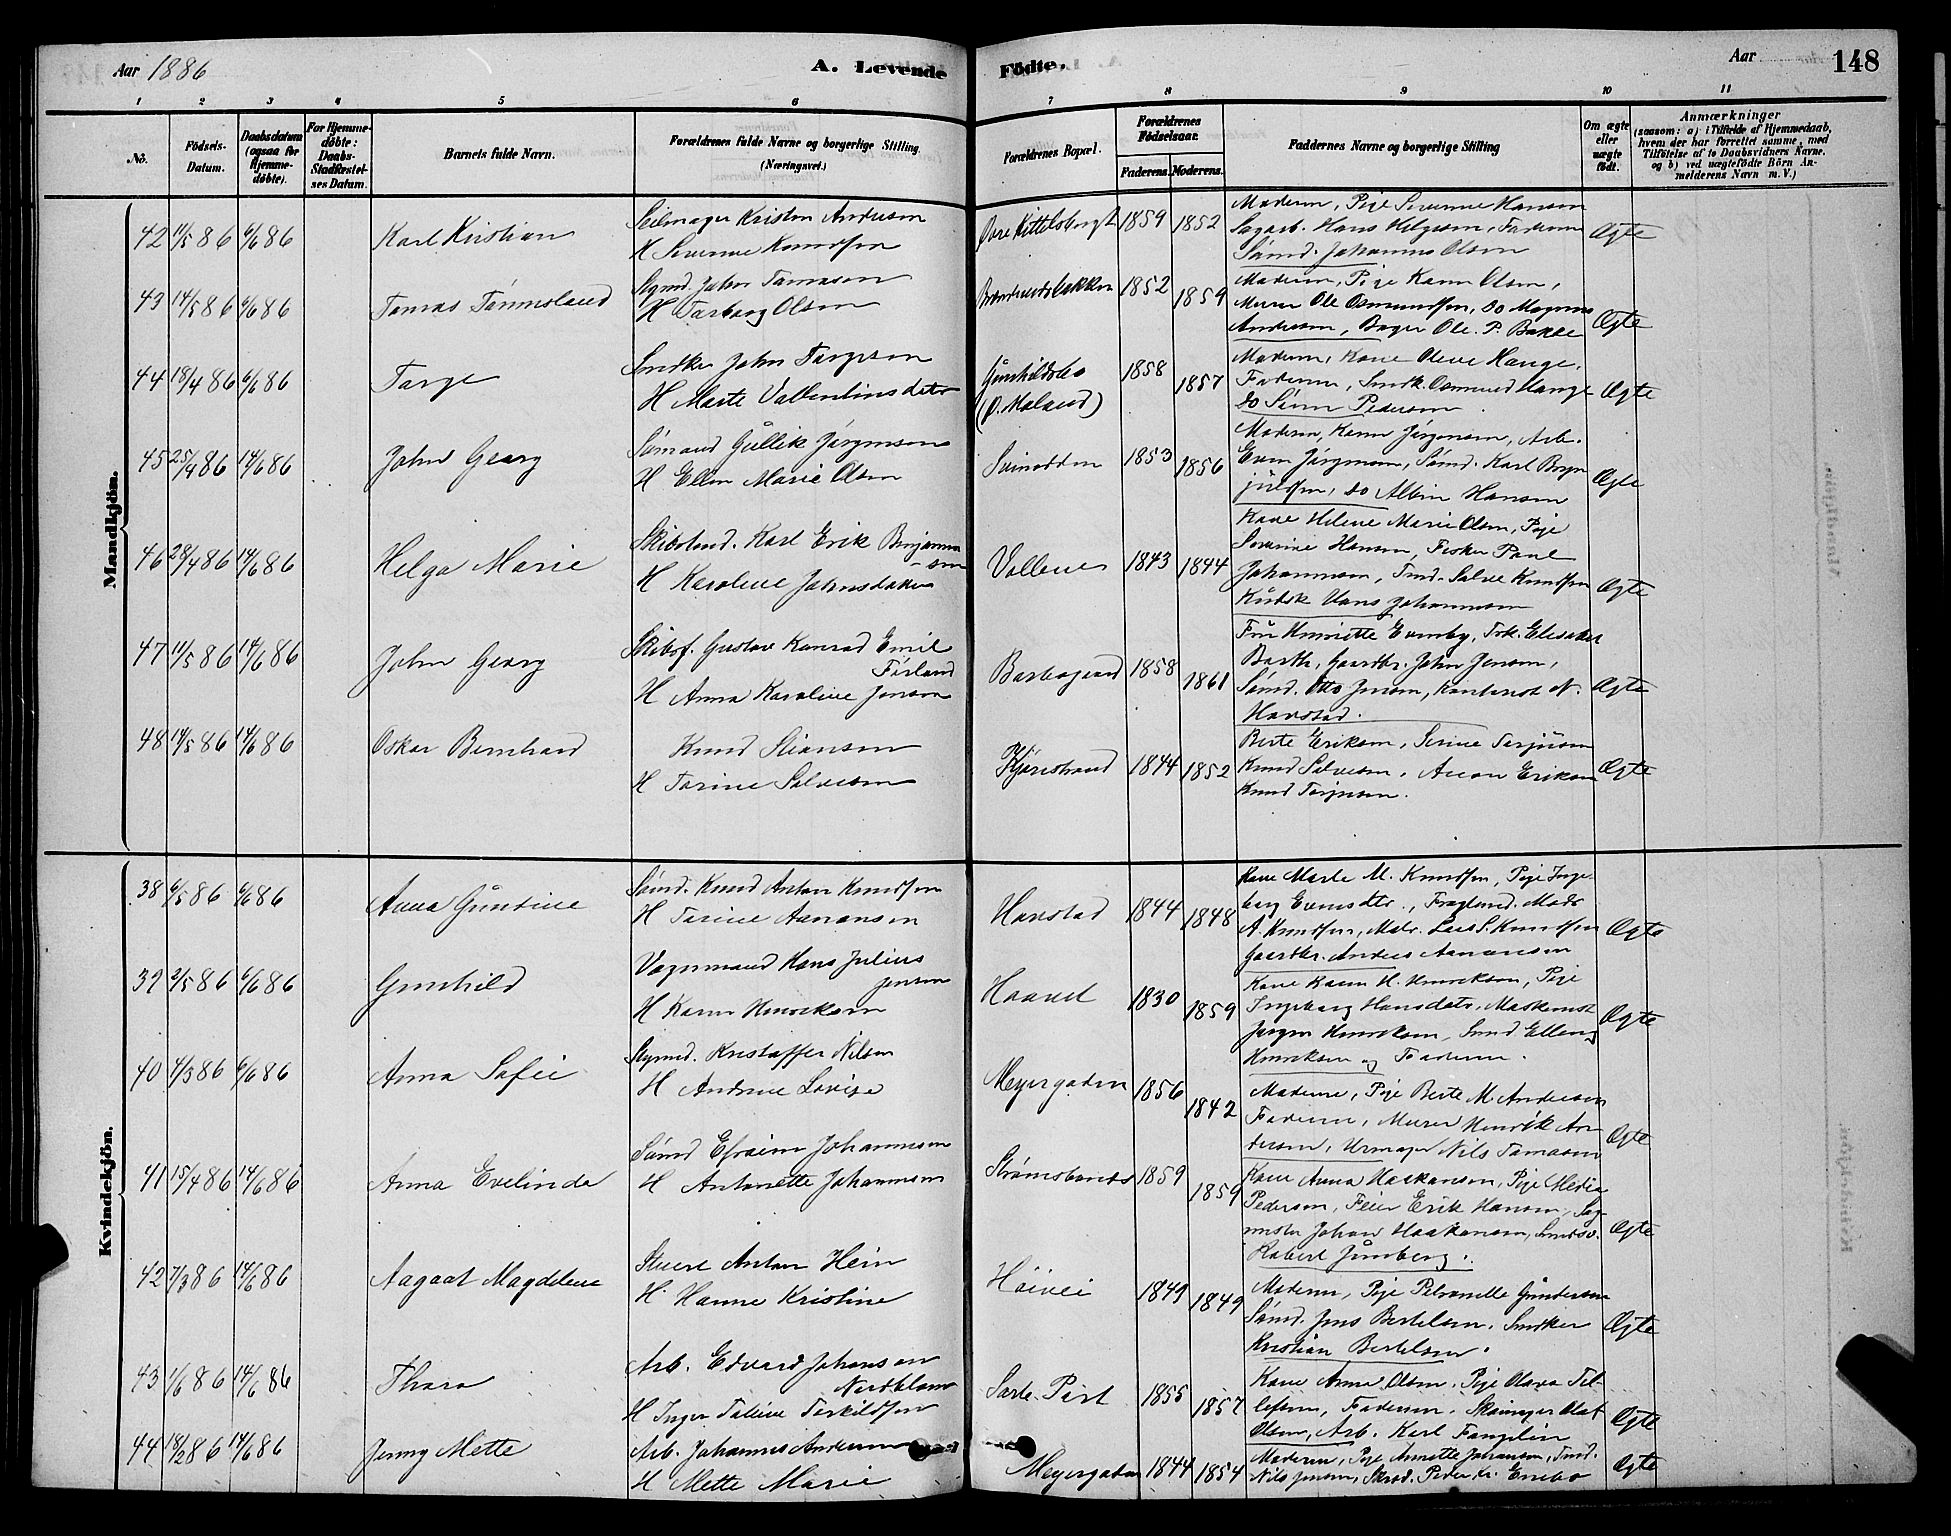 Aar 1886
A. Levende
Födte.
Aar
148
1 2 3 4 5 6 7 8 9 10 11
No.
Födsels-
Datum.
Daabsdatum
(ogsaa for
Hjemme-
döbte).
For Hjemme-
döbte:
Daabs-
Stadfæstel-
ses Datum.
Barnets fulde Navn.
Forældrenes fulde Navne og borgerlige Stilling
(Næringsvei.)
Forældrenes Bopæl.
Forældrenes
Födselsaar.
Faderens. Moderens.
Faddernes Navne og borgerlige Stilling
Om ægte
eller
uægte
födt.
Anmærkninger
(saasom: a) i Tilfælde af Hjemmedaab,
hvem der har forrettet samme, med
Tilföielse af to Daabsvidners Navne.
og b) ved uægtefödte Börn An-
melderens Navn m. V.)
Mandkjön.
42 11/5 86 6/6 86 Karl Kristian
Seilmager Kristen Andersen
H Severine Knudsen
Øvre Kittelsbugt 1859 1852
Moderen, Pige Severine Hansen
Sagarb. Hans Helgesen, Faderen
Sömd. Johannes Olsen
Ægte
43 14/5 86 6/6 86 Tomas Tönnesland
Stymd. John Tomasen
H Tarborg Olsen
1852 1859
Moderen, Pige Karen Olsen,
Murer Ole Osmundsen, do Magnus
Andersen, Bager Ole P. Bakke
Ægte
44 18/4 86 6/6 86 Targe
Snedker John Targesen
H Marte Vallentinsdatr
Gunhildsbo
(Ø. Moland)
1858 1857
Moderen, Kone Oleve Hauge,
Faderen, Snedk. Osmund Hauge
do Sören Pedersen
Ægte
45 25/4 86 14/6 86 John Georg
Sömand Gullik Jörgensen
H Ellen Marie Olsen
Svinodden 1853 1856
Moderen, Karen Jörgensen, Arb.
Even Jörgensen, Sömd. Karl Bryn
julfsen, do Albin Hansen
Ægte
46 28/4 86 14/6 86 Helga Marie
Skibstmd. Karl Erik Benjamin
sen
H Karoline Johnsdatter
Vollene 1843 1844
Kone Helene Marie Olsen, Pige
Severine Hansen, Fisker Paul
Johannesen, Tmd. Salve Knudsen
Kudsk Hans Johannesen
Ægte
47 11/5 86 14/6 86 John Georg
Skibsf. Gustav Konrad Emil
Förland
H Anna Karoline Jensen
Barbogaard 1858 1861
Fru Henriette Evensby, Frk. Elisabet
Barth, Gaardbr. John Jensen,
Sömd. Otto Jensen, Kontorist N.
Havstad.
Ægte
48 14/5 86 14/6 86 Oskar Bernhard
Knud Stiansen
H Torine Salvesen
Kjörestrand 1844 1852
Berte Eriksen, Serine Terjusen
Knud Salvesen, Anon Eriksen
Knud Torjusen.
Ægte
Kvindekjön.
38 6/5 86 6/6 86 Anna Guntine
Sömd. Knud Anton Knudsen
H Torine Aanonsen
Havstad 1844 1848
Kone Marte M. Knudsen, Pige Inge-
borg Evensdtr., Fragtmd. Mads
A. Knudsen, Malr. Lars S. Knudsen
Gaardbr. Anders Aanonsen
Ægte
39 2/5 86 6/6 86 Gunhild
Vognmand Hans Julius
Jensen
H Karen Henriksen
Haavet 1830 1859
Kone Karen H. Henriksen, Pige
Ingeborg Hansdatr, Maskinist
Jörgen Henriksen, Smd Elling
Henriksen og Faderen.
Ægte
40 4/3 86 6/6 86 Anna Sofie
Stymd. Kristoffer Nilsen
H Andrine Lovise
Meyergaden 1856 1842
Moderen, Pige Berte M. Andersen
Faderen, Murer Henrik An-
dersen, Urmager Nils Tomasen
Ægte
41 15/4 86 14/6 86 Anna Evelinda
Sömd Efraim Johannesen
H Antonette Johannesen
Strömsbunæs 1859 1859
Kone Anna Haakonsen, Pige Media
Pedersen, Feier Erik Hansen, Sag-
mester Johan Haakonsen, Smedsv.
Robert Junberg.
Ægte
42 7/3 86 14/6 86 Aagaat Magdelene
Stuert Anton Hein
H. Hanne Kristine
Höivei 1849 1849
Moderen, Pige Petronelle Gundersen
Sömd. Jens Bertelsen, Snedker
Kristian Bertelsen.
Ægte
43 1/6 86 14/6 86 Thora
Arb. Edvard Johansen
Nordblom
H Inger Taline Terkildsen
1855 1857
Kone Anna Olsen, Pige Olava Tel-
lefsen, Faderen, Skomager Olaf
Olsen, Arb. Karl Fanglin
Ægte
44 18/2 86 14/6 86 Jenny Mette
Arb. Johannes Andersen
H Mette Marie
Meyergaden 1844 1854
Moderen, Pige Annette Johansen, Tmd.
Nils Jensen, Skræd. Peder Kr. Enebo
Ægte